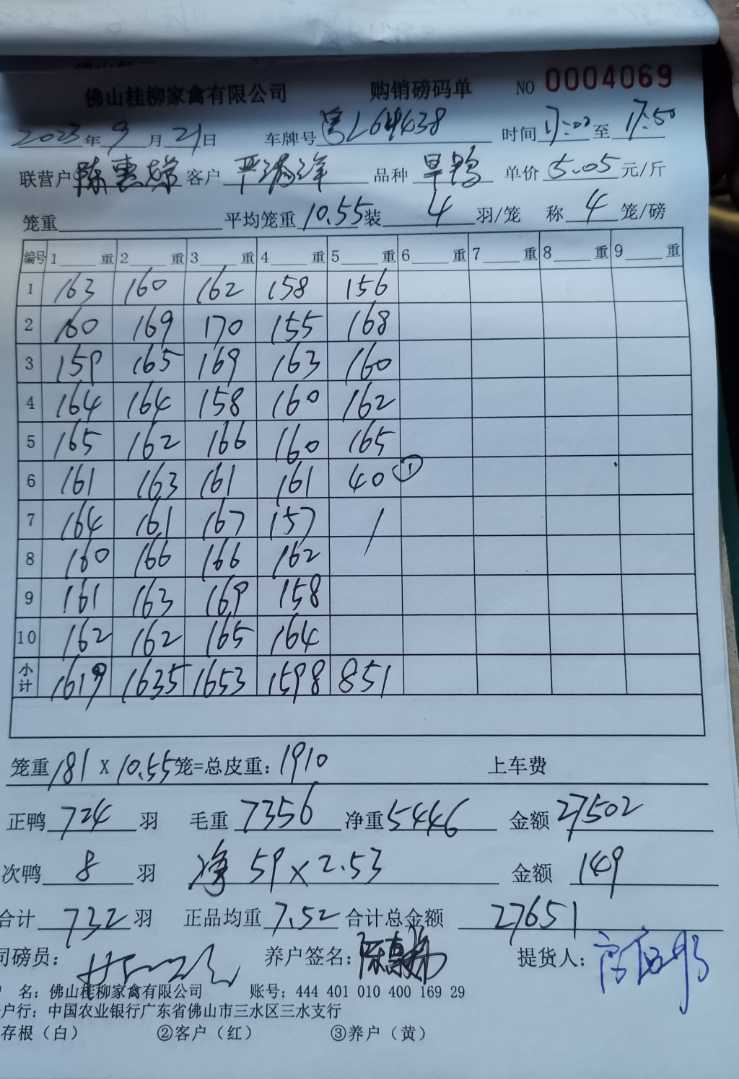 佛山桂柳家禽有限公司 购销磅码单 NO 0004069
2023年9月21日 车牌号粤L64438 时间17:02至17:50
联营户陈惠嫦 客户严满洋 品种旱鸭 单价5.05元/斤
笼重 平均笼重10.55装4羽/笼 称4笼/磅
编号 1 重 2 重 3 重 4 重 5 重 6 重 7 重 8 重 9 重
1 163 160 162 158 156
2 160 169 170 155 168
3 159 165 169 163 160
4 164 164 158 160 162
5 165 162 166 160 165
6 161 163 161 161 40 ①
7 164 161 167 157 /
8 160 166 166 162
9 161 163 169 158
10 162 162 165 164
小计 1619 1635 1653 1598 851
笼重181×10.55笼=总皮重:1910 上车费
正鸭724羽 毛重7356 净重5446 金额27502
次鸭8羽 净59×2.53 金额149
合计732羽 正品均重7.52 合计总金额27651
司磅员: 养户签名:陈惠嫦 提货人:
户 名:佛山桂柳家禽有限公司 账号:444 401 010 400 169 29
户行:中国农业银行广东省佛山市三水区三水支行
存根(白) ②客户(红) ③养户(黄)